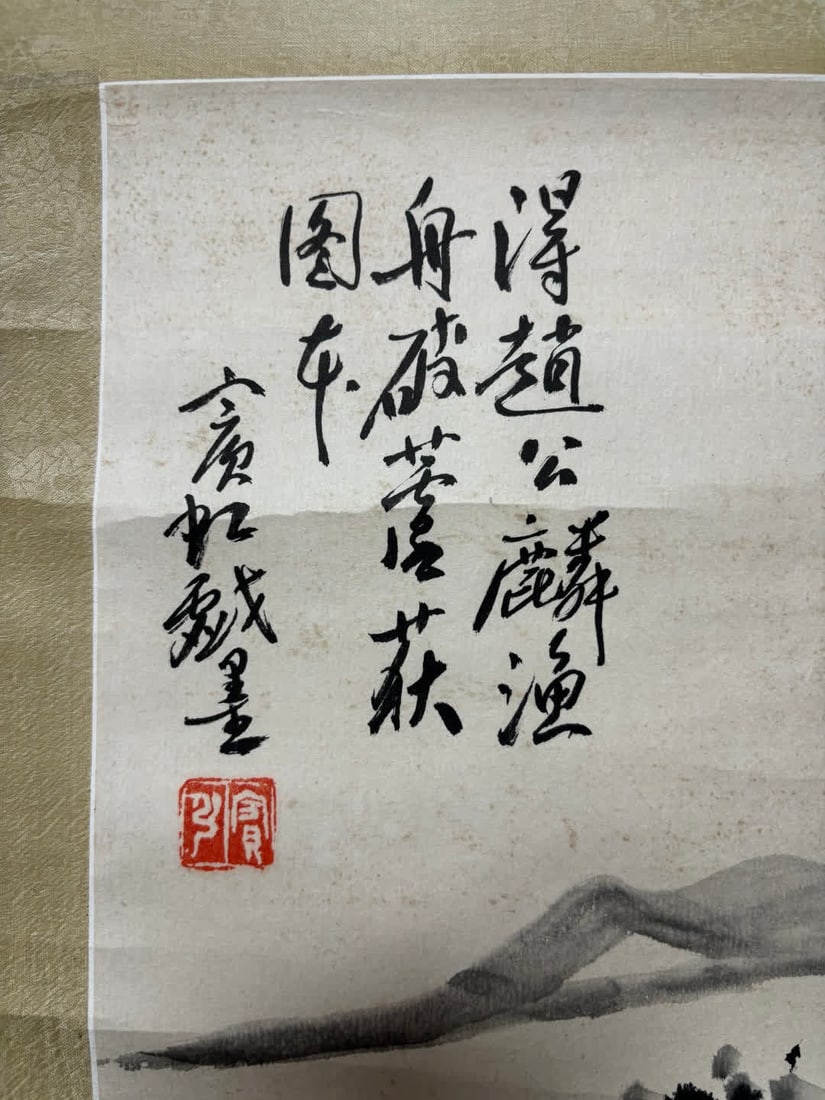 得趙公麟漁
舟破蘆荻
图本
賓虹戲墨
賓